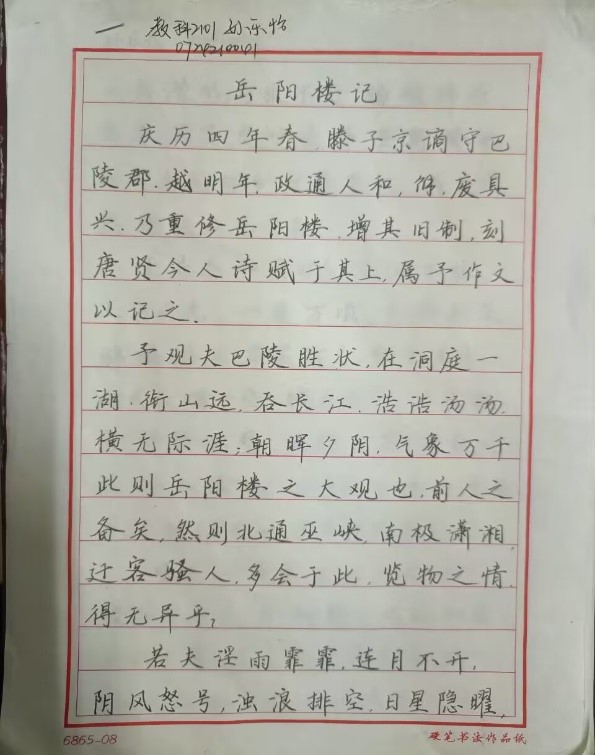 一 教科2101 孙乐怡
岳阳楼记
庆历四年春.滕子京谪守巴
陵郡.越明年.政通人和,废具
兴.乃重修岳阳楼.增其旧制,刻
唐贤今人诗赋于其上.属予作文
以记之.
予观夫巴陵胜状,在洞庭一
湖.衔山远,吞长江.浩浩汤汤.
横无际涯;朝晖夕阴.气象万千
此则岳阳楼之大观也,前人之
备矣.然则北通巫峡.南极潇湘.
迁客骚人.多会于此.览物之情.
得无异乎?
若夫淫雨霏霏.连月不开,
阴风怒号,浊浪排空.日星隐曜,
6865-08 硬笔书法作品纸